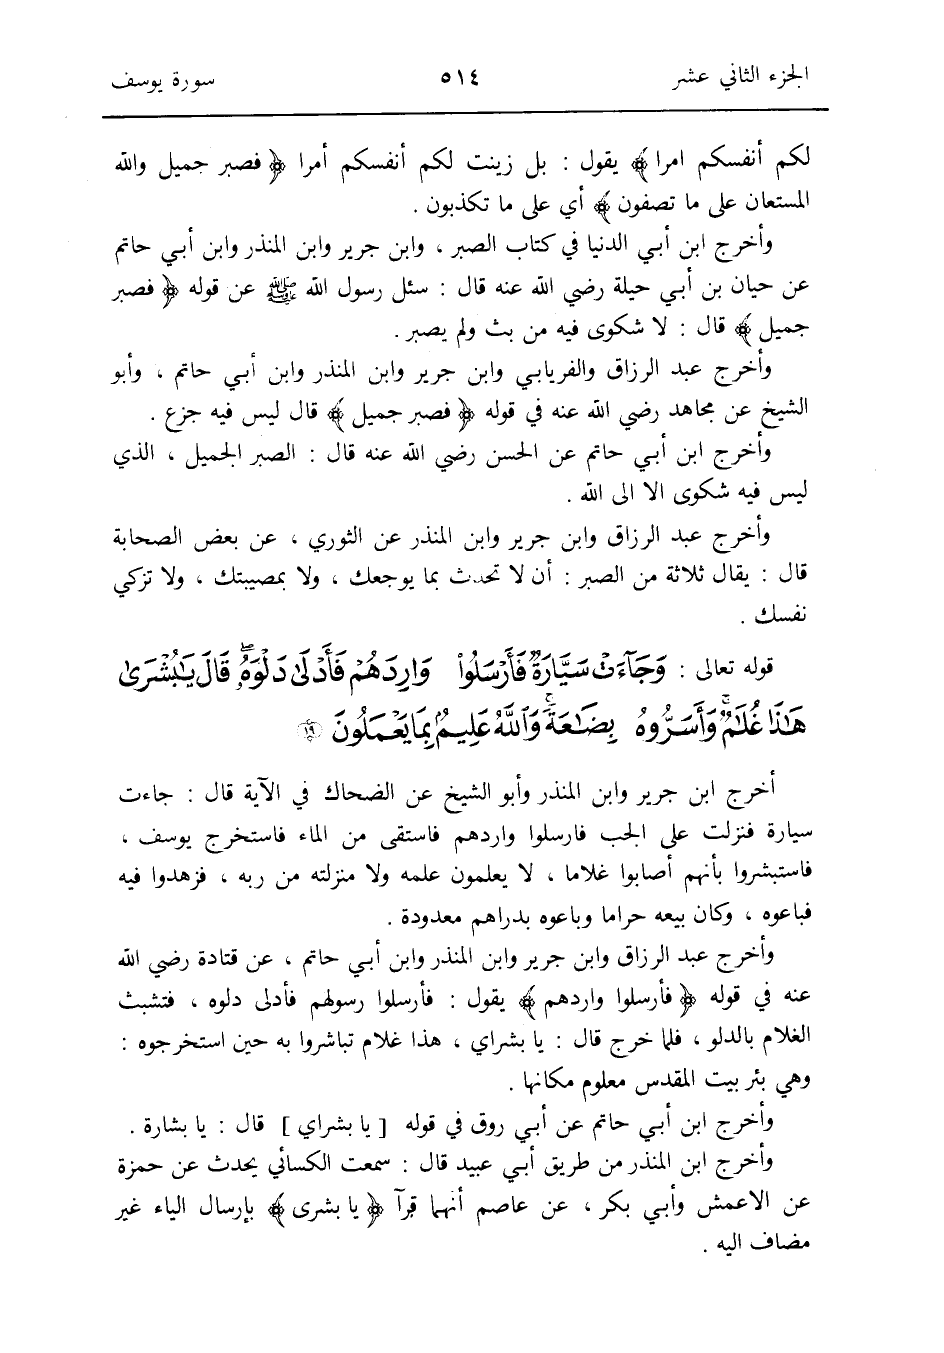 الجزء الثاني عشر ٥١٤ سورة يوسف
لكم أنفسكم امرا ﴾ يقول : بل زينت لكم أنفسكم أمرا ﴿ فصبر جميل والله
المستعان على ما تصفون ﴾ أي على ما تكذبون .
وأخرج ابن أبي الدنيا في كتاب الصبر ، وابن جرير وابن المنذر وابن أبي حاتم
عن حيان بن أبي حيلة رضي الله عنه قال : سئل رسول الله ﷺ عن قوله ﴿ فصبر
جميل ﴾ قال : لا شكوى فيه من بث ولم يصبر .
وأخرج عبد الرزاق والفريابي وابن جرير وابن المنذر وابن أبي حاتم ، وأبو
الشيخ عن مجاهد رضي الله عنه في قوله ﴿ فصبر جميل ﴾ قال ليس فيه جزع .
وأخرج ابن أبي حاتم عن الحسن رضي الله عنه قال : الصبر الجميل ، الذي
ليس فيه شكوى الا الى الله .
وأخرج عبد الرزاق وابن جرير وابن المنذر عن الثوري ، عن بعض الصحابة
قال : يقال ثلاثة من الصبر : أن لا تحدث بما يوجعك ، ولا بمصيبتك ، ولا تزكي
نفسك .
قوله تعالى : وَجَآءَتْ سَيَّارَةٌ فَأَرْسَلُواْ وَارِدَهُمْ فَأَدْلَىٰ دَلْوَهُۥ ۖ قَالَ يَـٰبُشْرَىٰ
هَـٰذَا غُلَـٰمٌ ۚ وَأَسَرُّوهُ بِضَـٰعَةً ۚ وَٱللَّهُ عَلِيمُۢ بِمَا يَعْمَلُونَ ١٩
أخرج ابن جرير وابن المنذر وأبو الشيخ عن الضحاك في الآية قال : جاءت
سيارة فنزلت على الجب فارسلوا واردهم فاستقى من الماء فاستخرج يوسف ،
فاستبشروا بأنهم أصابوا غلاما ، لا يعلمون علمه ولا منزلته من ربه ، فزهدوا فيه
فباعوه ، وكان بيعه حراما وباعوه بدراهم معدودة .
وأخرج عبد الرزاق وابن جرير وابن المنذر وابن أبي حاتم ، عن قتادة رضي الله
عنه في قوله ﴿ فأرسلوا واردهم ﴾ يقول : فأرسلوا رسولهم فأدلى دلوه ، فتشبث
الغلام بالدلو ، فلما خرج قال : يا بشراي ، هذا غلام تباشروا به حين استخرجوه :
وهي بئر بيت المقدس معلوم مكانها .
وأخرج ابن أبي حاتم عن أبي روق في قوله [ يا بشراي ] قال : يا بشارة .
وأخرج ابن المنذر من طريق أبي عبيد قال : سمعت الكسائي يحدث عن حمزة
عن الاعمش وأبي بكر ، عن عاصم أنهما قرآ ﴿ يا بشرى ﴾ بإرسال الياء غير
مضاف اليه .